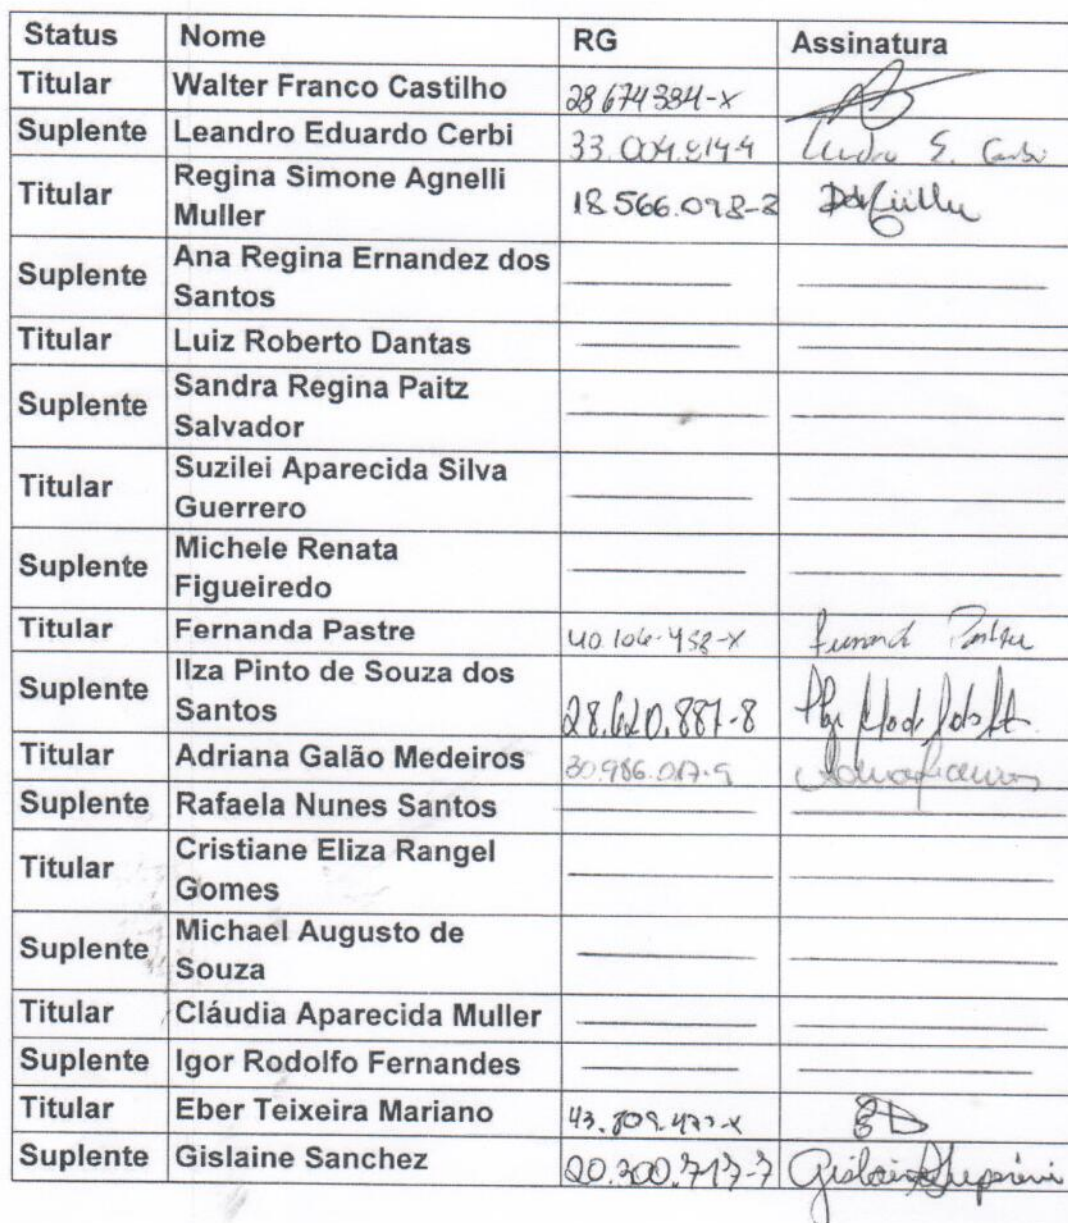 Status Nome RG Assinatura
Titular Walter Franco Castilho 28674384-X
Suplente Leandro Eduardo Cerbi 33.004.814-4
Titular Regina Simone Agnelli
Muller 18.566.098-8
Suplente Ana Regina Ernandez dos
Santos
Titular Luiz Roberto Dantas
Suplente Sandra Regina Paitz
Salvador
Titular Suzilei Aparecida Silva
Guerrero
Suplente Michele Renata
Figueiredo
Titular Fernanda Pastre
Suplente Ilza Pinto de Souza dos
Santos 28.620.887-8
Titular Adriana Galão Medeiros
Suplente Rafaela Nunes Santos
Titular Cristiane Eliza Rangel
Gomes
Suplente Michael Augusto de
Souza
Titular Cláudia Aparecida Muller
Suplente Igor Rodolfo Fernandes
Titular Eber Teixeira Mariano
Suplente Gislaine Sanchez